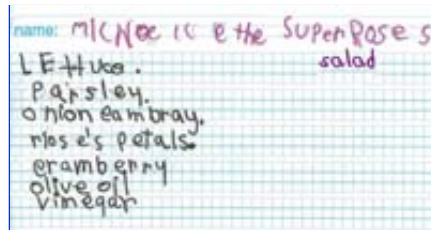 name: the SuperRose s
salad
LEttuce.
Parsley.
onion eambray.
rose's petals.
eramberry
olive oil
vinegar